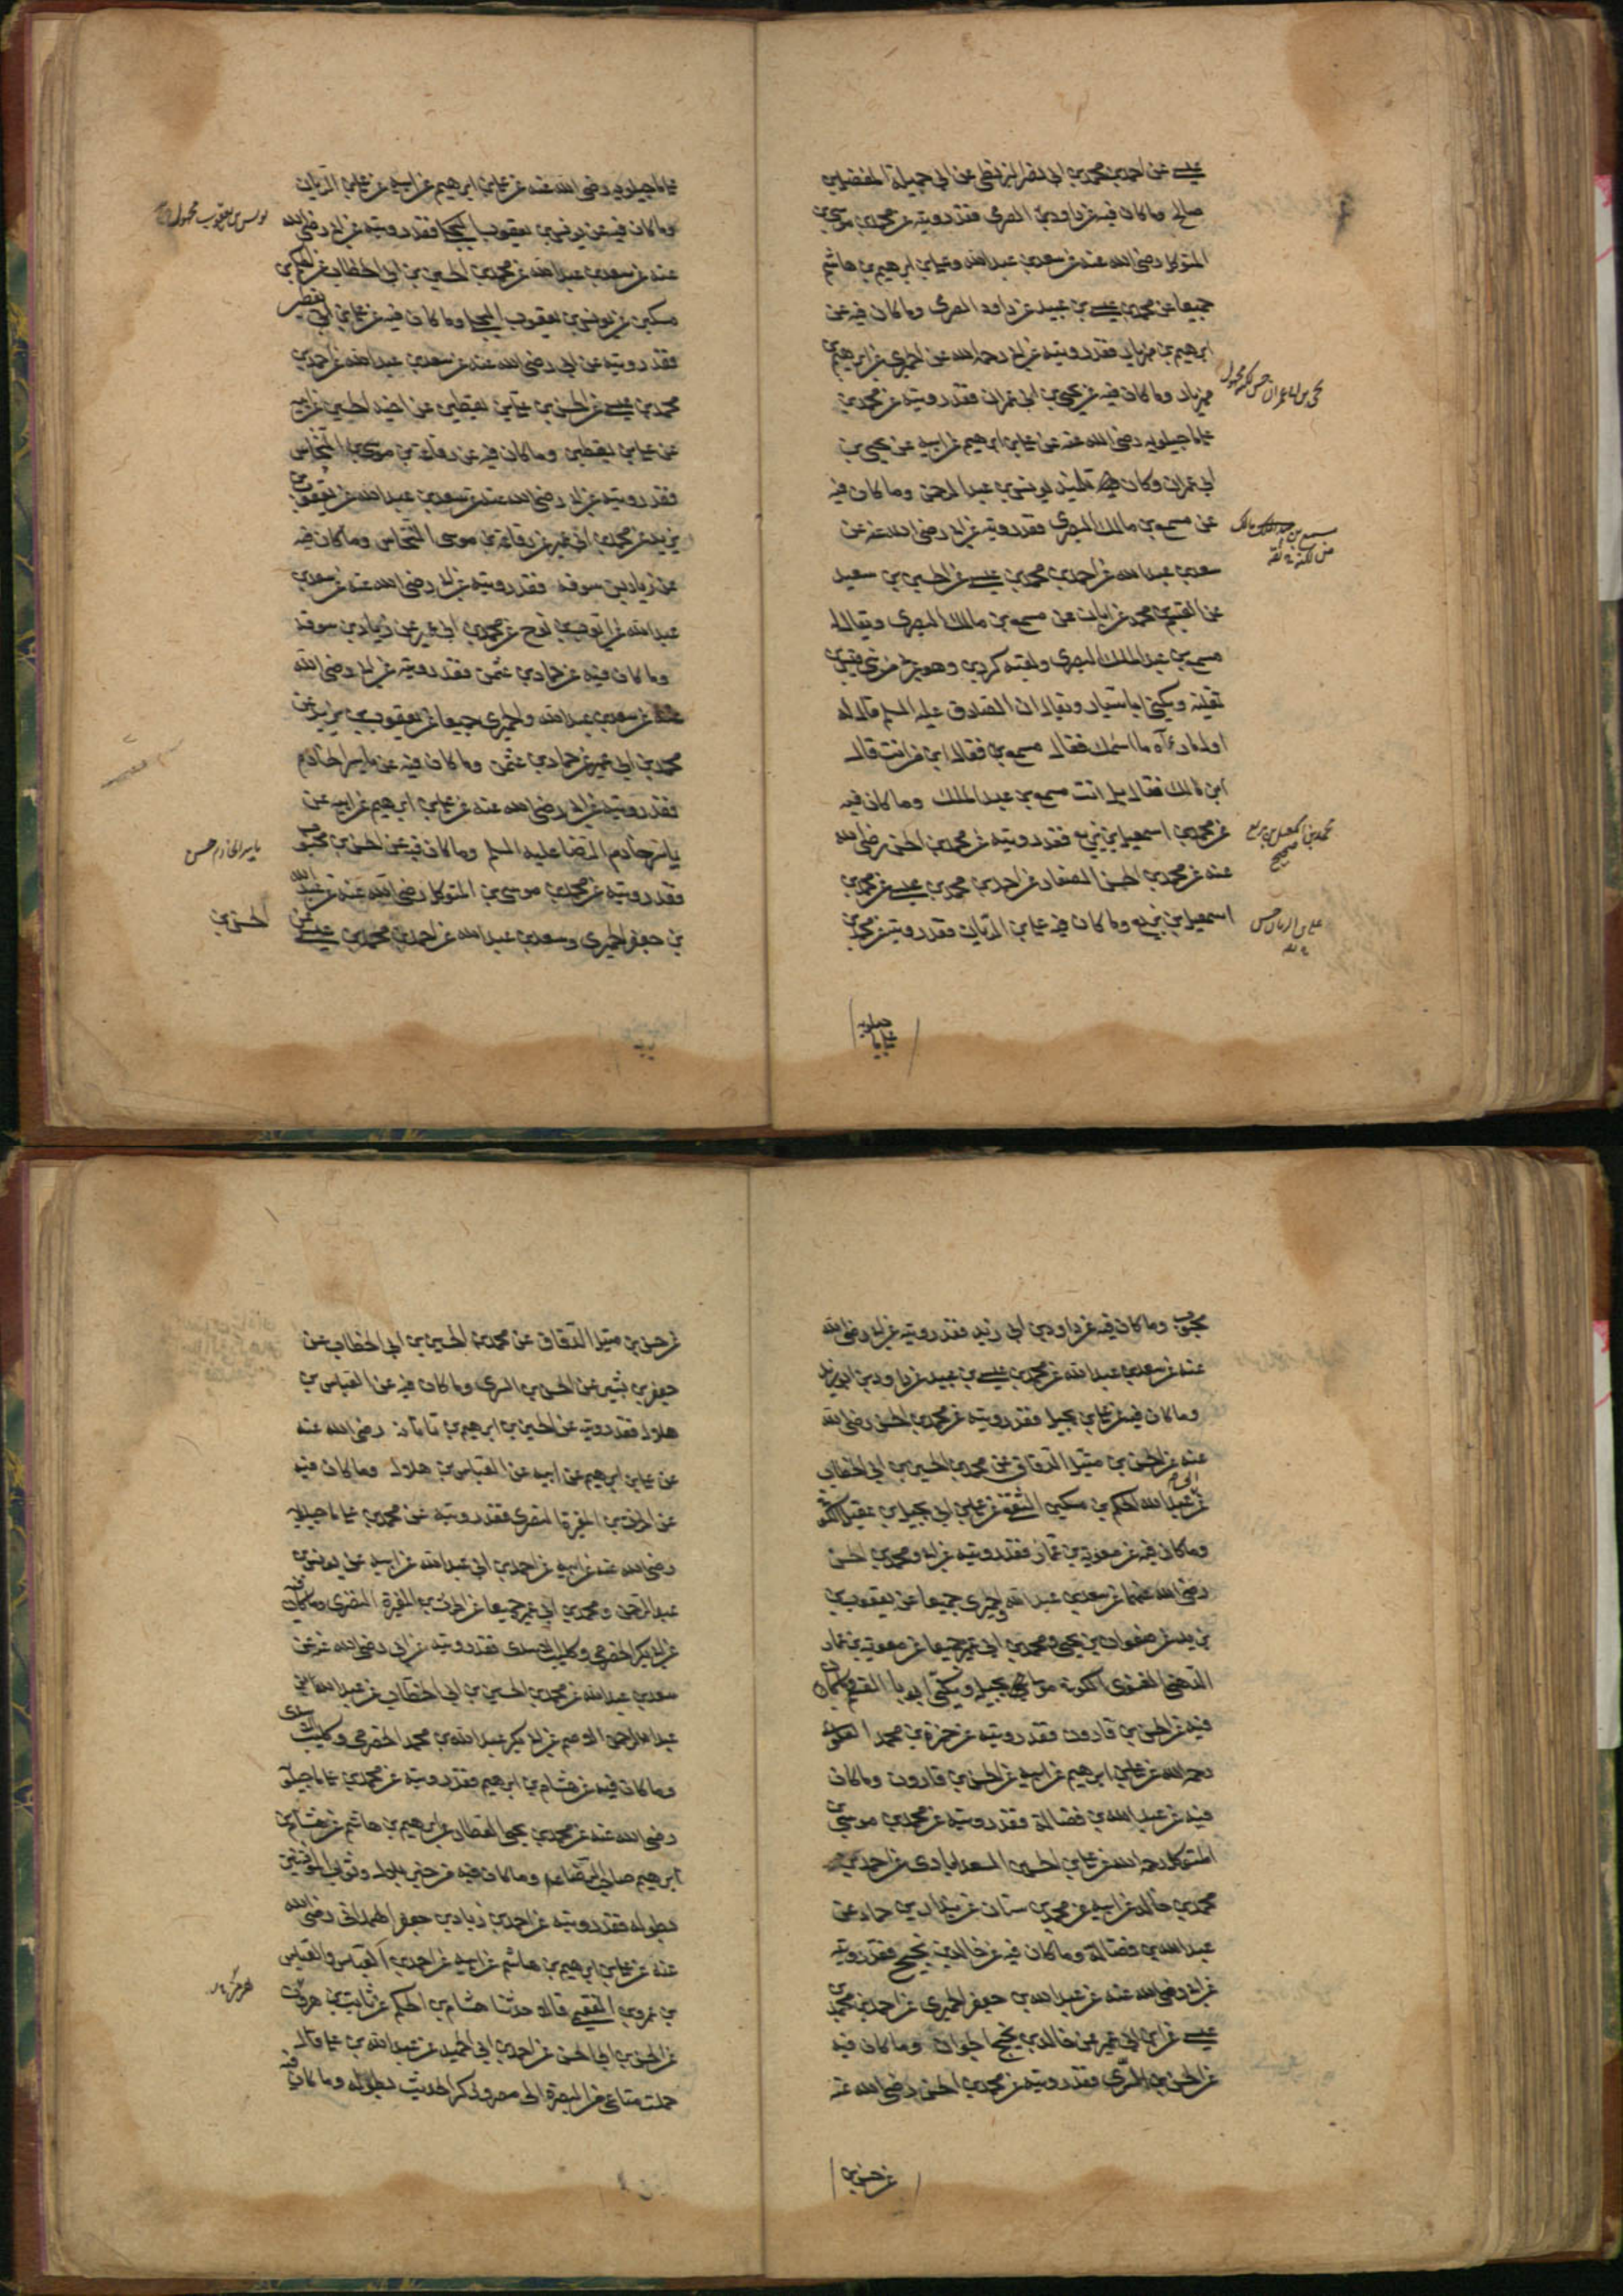 عيسى عن احمد بن محمد بن ابى نصر البزنطى عن ابى جميلة المفضل بن
صالح وما كان فيه عن داود بن الصرمى فقد رويته عن محمد بن موسى بن
المتوكل رضى الله عنه عن سعد بن عبد الله وعلى بن ابرهيم بن هاشم
جميعا عن محمد بن عيسى بن عبيد عن داود الصرمى وما كان فيه عن
ابرهيم بن مهزيار فقد رويته عن ابى رحمه الله عن الحميرى عن ابرهيم بن
مهزيار وما كان فيه عن يحيى بن ابى عمران فقد رويته عن محمد بن
على ماجيلويه رضى الله عنه عن على بن ابرهيم عن ابيه عن يحيى بن
ابى عمران وكان تلميذ يونس بن عبد الرحمن وما كان فيه
عن مسمع بن مالك البصرى فقد رويته عن ابى رضى الله عنه عن
سعد بن عبد الله عن احمد بن محمد بن عيسى عن الحسين بن سعيد
عن القسم بن محمد عن ابان عن مسمع بن مالك البصرى ويقال له
مسمع بن عبد الملك البصرى ولقبه كردين وهو عربى من بنى قيس بن
ثعلبة ويكنى ابا سيار ويقال ان الصادق عليه السلم قال له
اول ما رآه ما اسمك فقال مسمع بن فقال ابن من انت قال
ابن مالك فقال بل انت مسمع بن عبد الملك وما كان فيه
عن محمد بن اسمعيل بن بزيع فقد رويته عن محمد بن الحسن رضى الله
عنه عن محمد بن الحسن الصفار عن احمد بن محمد بن عيسى عن محمد بن
اسمعيل بن بزيع وما كان فيه عن على بن الريان فقد رويته عن محمد بن
محمد بن اسمعيل بن بزيع
صحيح
على بن الريان حسن
على ما
جيلويه
على ماجيلويه رضى الله عنه عن على بن ابرهيم عن ابيه عن على بن الريان
وما كان فيه عن يونس بن يعقوب البجلى فقد رويته عن ابى رضى الله
عنه عن سعد بن عبد الله عن محمد بن الحسين بن ابى الخطاب عن الحكم بن
مسكين عن يونس بن يعقوب البجلى وما كان فيه عن على بن يقطين
فقد رويته عن ابى رضى الله عنه عن سعد بن عبد الله عن احمد بن
محمد بن عيسى عن الحسن بن على بن يقطين عن اخيه الحسين عن ابيه
عن على بن يقطين وما كان فيه عن رفاعة بن موسى النخاس
فقد رويته عن ابى رضى الله عنه عن سعد بن عبد الله عن يعقوب بن
يزيد عن محمد بن ابى عمير عن رفاعة بن موسى النخاس وما كان فيه
عن زياد بن سوقة فقد رويته عن ابى رضى الله عنه عن سعد بن
عبد الله عن ايوب بن نوح عن محمد بن ابى عمير عن زياد بن سوقة
وما كان فيه عن حماد بن عثمن فقد رويته عن ابى رضى الله
عنه عن سعد بن عبد الله والحميرى جميعا عن يعقوب بن يزيد عن
محمد بن ابى عمير عن حماد بن عثمن وما كان فيه عن ياسر الخادم
فقد رويته عن ابى رضى الله عنه عن على بن ابرهيم عن ابيه عن
ياسر خادم الرضا عليه السلم وما كان فيه عن الحسن بن محبوب
فقد رويته عن محمد بن موسى بن المتوكل رضى الله عنه عن عبد الله
بن جعفر الحميرى وسعد بن عبد الله عن احمد بن محمد بن عيسى عن
الحسن بن
ياسر الخادم حسن
محبوب وما كان فيه عن داود بن ابى زيد فقد رويته عن ابى رضى الله
عنه عن سعد بن عبد الله عن محمد بن عيسى بن عبيد عن داود بن ابى زيد
وما كان فيه عن على بن بجيل فقد رويته عن محمد بن الحسن رضى الله
عنه عن الحسن بن متيل الدقاق عن محمد بن الحسين بن ابى الخطاب
عن ابى عبد الله الحكم بن مسكين الثقفى عن على بن بجيل بن عقيل الكوفى
وما كان فيه عن معوية بن عمار فقد رويته عن ابى ومحمد بن الحسن
رضى الله عنهما عن سعد بن عبد الله والحميرى جميعا عن يعقوب بن
يزيد عن صفوان بن يحيى ومحمد بن ابى عمير جميعا عن معوية بن عمار
الدهنى الغنوى الكوفى مولى بجيلة ويكنى ابا القسم وما كان
فيه عن الحسن بن قارون فقد رويته عن حمزة بن محمد العلوى
رحمه الله عن على بن ابرهيم عن ابيه عن الحسن بن قارون وما كان
فيه عن عبد الله بن فضالة فقد رويته عن محمد بن موسى بن
المتوكل رحمه الله عن على بن الحسين السعدابادى عن احمد بن
محمد بن خالد عن ابيه عن محمد بن سنان عن بندار بن حماد عن
عبد الله بن فضالة وما كان فيه عن خالد بن نجيح فقد رويته
عن ابى رضى الله عنه عن عبد الله بن جعفر الحميرى عن احمد بن محمد بن
عيسى عن ابن ابى عمير عن خالد بن نجيح الجوان وما كان فيه
عن الحسن بن السرى فقد رويته عن محمد بن الحسن رضى الله عنه
عن حسن بن
عن حسن بن متيل الدقاق عن محمد بن الحسين بن ابى الخطاب عن
جعفر بن بشير عن الحسن بن السرى وما كان فيه عن العباس بن
هلال فقد رويته عن الحسين بن ابرهيم بن ناتانه رضى الله عنه
عن على بن ابرهيم عن ابيه عن العباس بن هلال وما كان فيه
عن الحرث بن المغيرة النصرى فقد رويته عن محمد بن على ماجيلويه
رضى الله عنه عن ابيه عن احمد بن ابى عبد الله عن ابيه عن يونس بن
عبد الرحمن ومحمد بن ابى عمير جميعا عن الحرث بن المغيرة النصرى وما كان فيه
عن ابى بكر الحضرمى وكليب الاسدى فقد رويته عن ابى رضى الله عنه عن
سعد بن عبد الله عن محمد بن الحسين بن ابى الخطاب عن عبد الله بن
عبد الرحمن الاصم عن ابى بكر عبد الله بن محمد الحضرمى وكليب الاسدى
وما كان فيه عن هشام بن ابرهيم فقد رويته عن محمد بن على ماجيلويه
رضى الله عنه عن محمد بن يحيى العطار عن ابرهيم بن هاشم عن هشام بن
ابرهيم صاحب الرضا عم وما كان فيه من خبر بلال وثواب المؤذنين
بطوله فقد رويته عن احمد بن زياد بن جعفر الهمدانى رضى الله
عنه عن على بن ابرهيم بن هاشم عن ابيه عن احمد بن العباس والعباس
بن عمرو الفقيمى قالا حدثنا هشام بن الحكم عن ثابت بن هرمز
عن الحسن بن ابى الحسن عن احمد بن ابى الحميد عن عبد الله بن على قال
حملت متاعى من البصرة الى مصر وذكر الحديث بطوله وما كان فيه